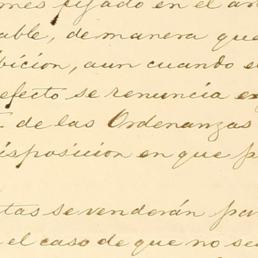 mes fijado en el ar
able, de manera que
bicion, aun cuando e
efecto se renuncia ex
de las Ordenanzas
disposicion en que p
tas se venderán par
el caso de que no sea